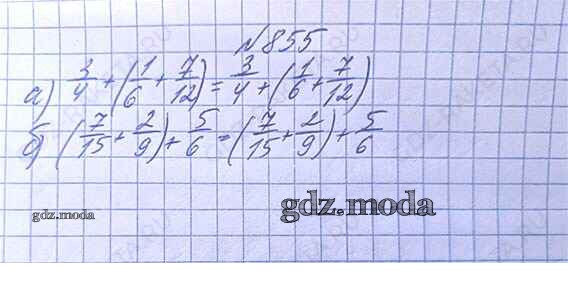 №855
а) 3/4 + (1/6 + 7/12) = 3/4 + (1/6 + 7/12)
б) (7/15 + 2/9) + 5/6 = (7/15 + 2/9) + 5/6
gdz.moda
gdz.moda